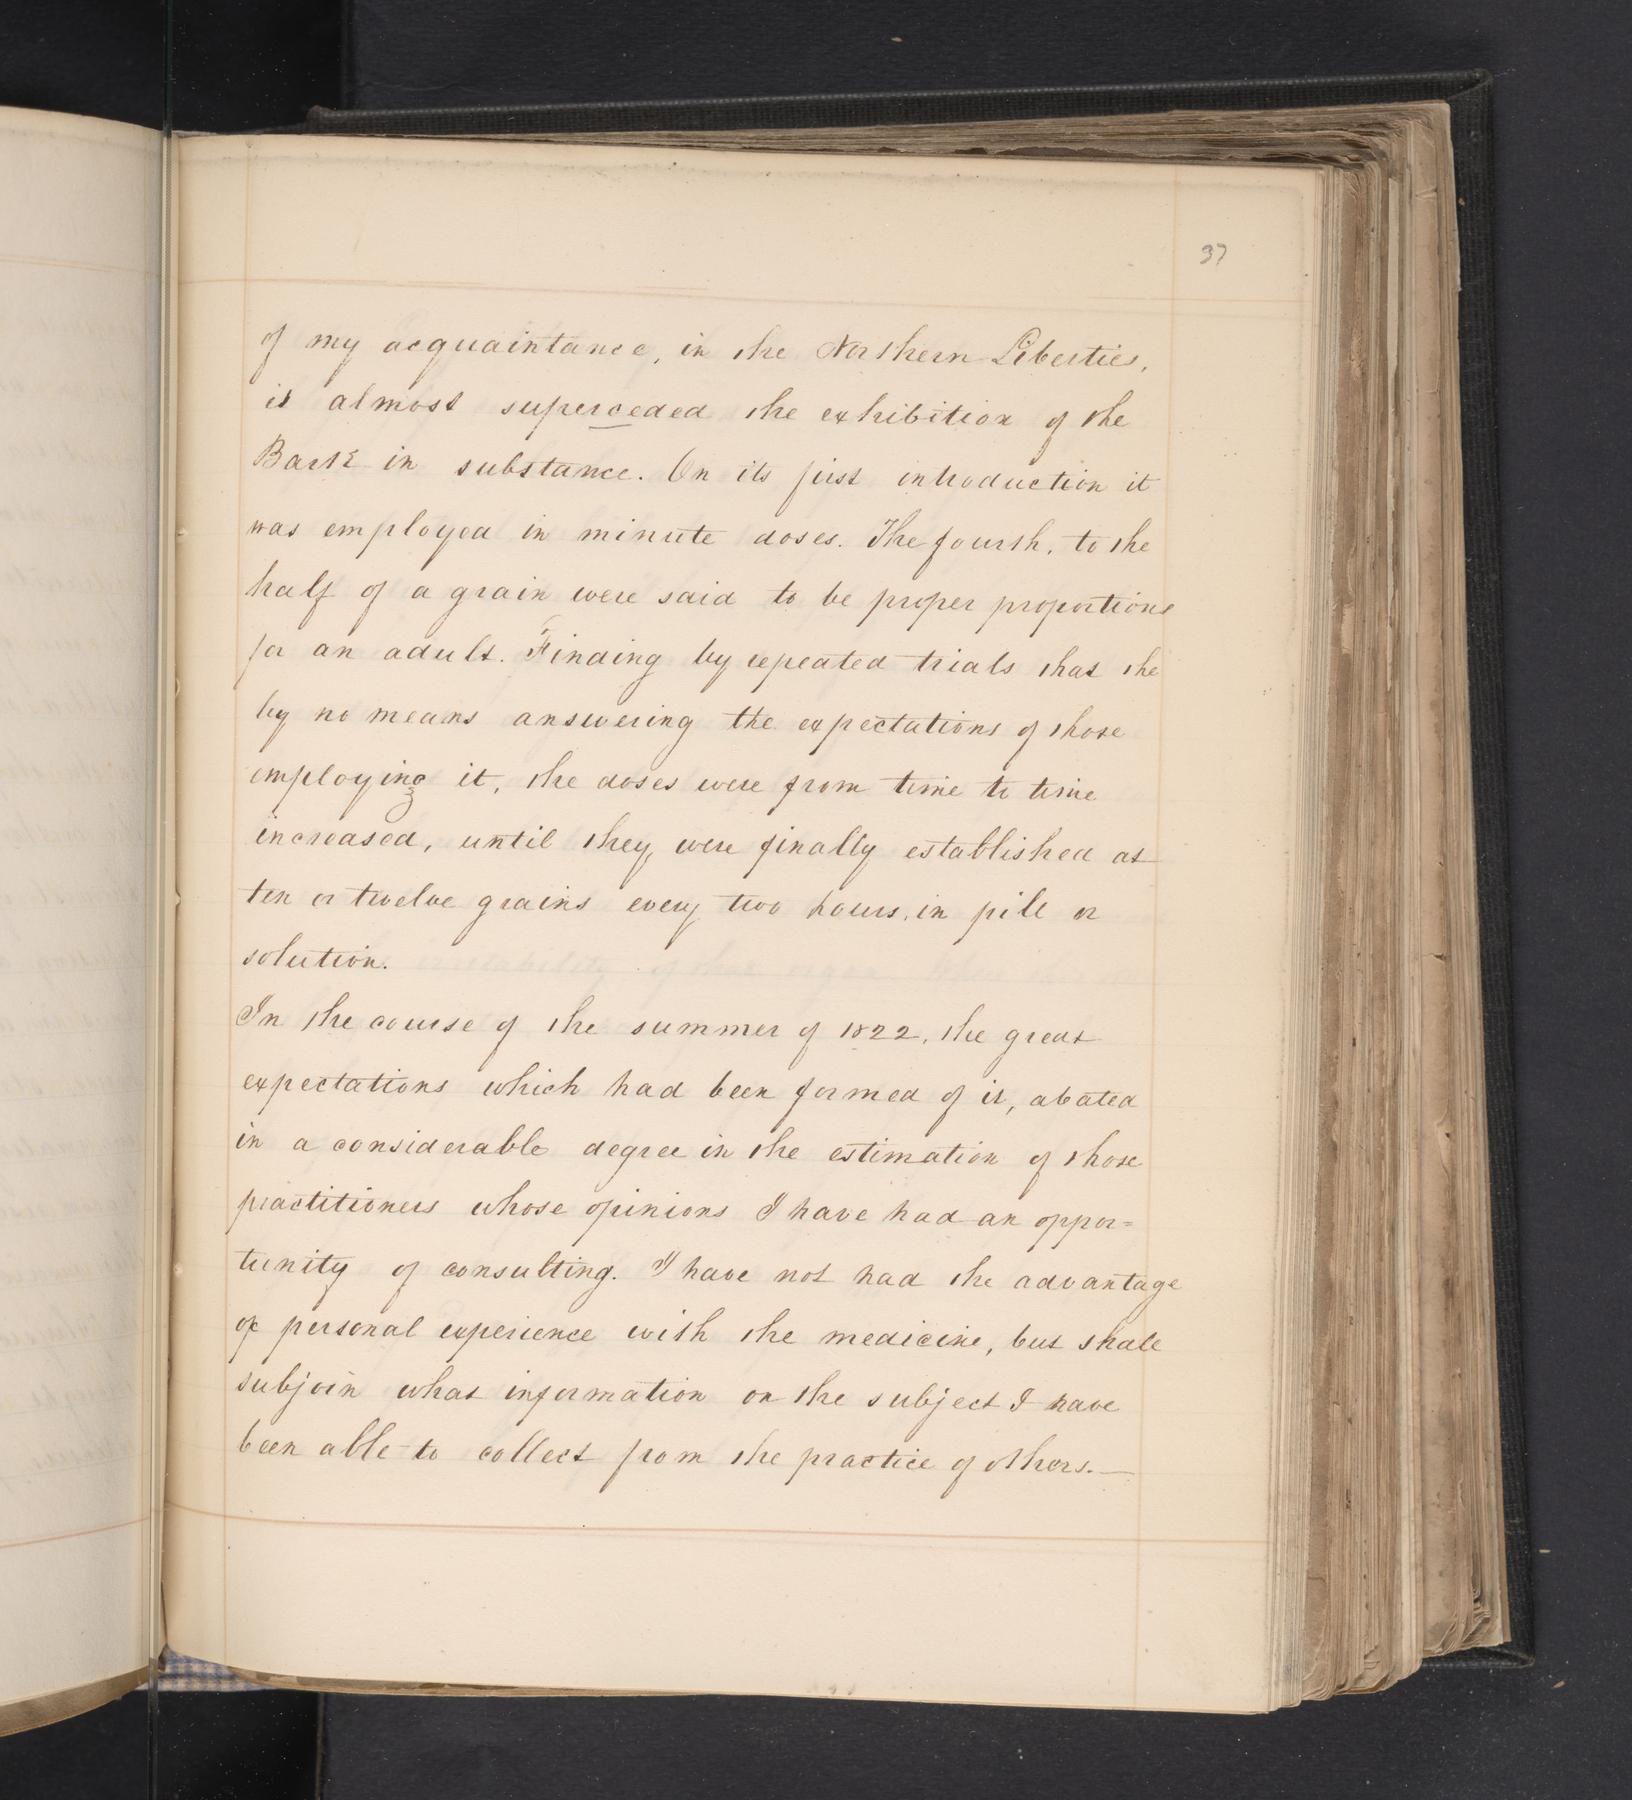 37
of my acquaintance, in the Northern Liberties,
it almost superceded the exhibition of the
Bark in substance. On its first introduction it
was employed in minute doses. The fourth, to the
half of a grain were said to be proper proportions
for an adult. Finding by repeated trials that the
by no means answering the expectations of those
employing it, the doses were from time to time
increased, until they were finally established at
ten or twelve grains every two hours, in pill or
solution.
In the course of the summer of 1822, the great
expectations which had been formed of it, abated
in a considerable degree in the estimation of those
practitioners whose opinions I have had an oppor=
tunity of consulting. I have not had the advantage
of personal experience with the medicine, but shall
subjoin what information on the subject I have
been able to collect from the practice of others.—